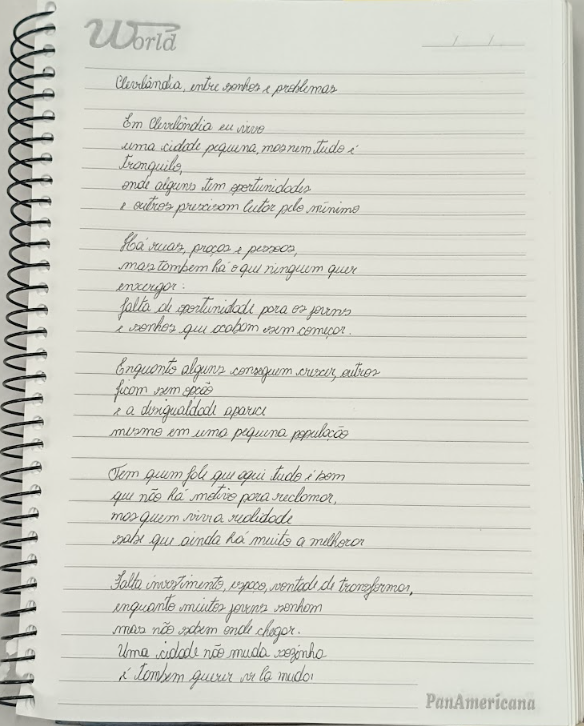 World
Clevelândia, entre sonhos e problemas
Em Clevelândia eu vivo
uma cidade pequena, mas nem tudo é
tranquilo,
onde alguns tem oportunidades
e outros precisam lutar pelo mínimo
Há ruas, praças e pessoas,
mas tambem há o que ninguem quer
enxergar:
falta de oportunidade para os jovens
e sonhos que acabam sem começar.
Enquanto alguns conseguem crescer, outros
ficam sem opção
e a desigualdade aparece
mesmo em uma pequena população
Tem quem fale que aqui tudo é bom
que não há motivo para reclamar,
mas quem vive a realidade
sabe que ainda há muito a melhorar
Falta investimento, espaço, vontade de transformar,
enquanto muitos jovens sonham
mas não sabem onde chegar.
Uma cidade não muda sozinha
é tambem querer ve la mudar
PanAmericana